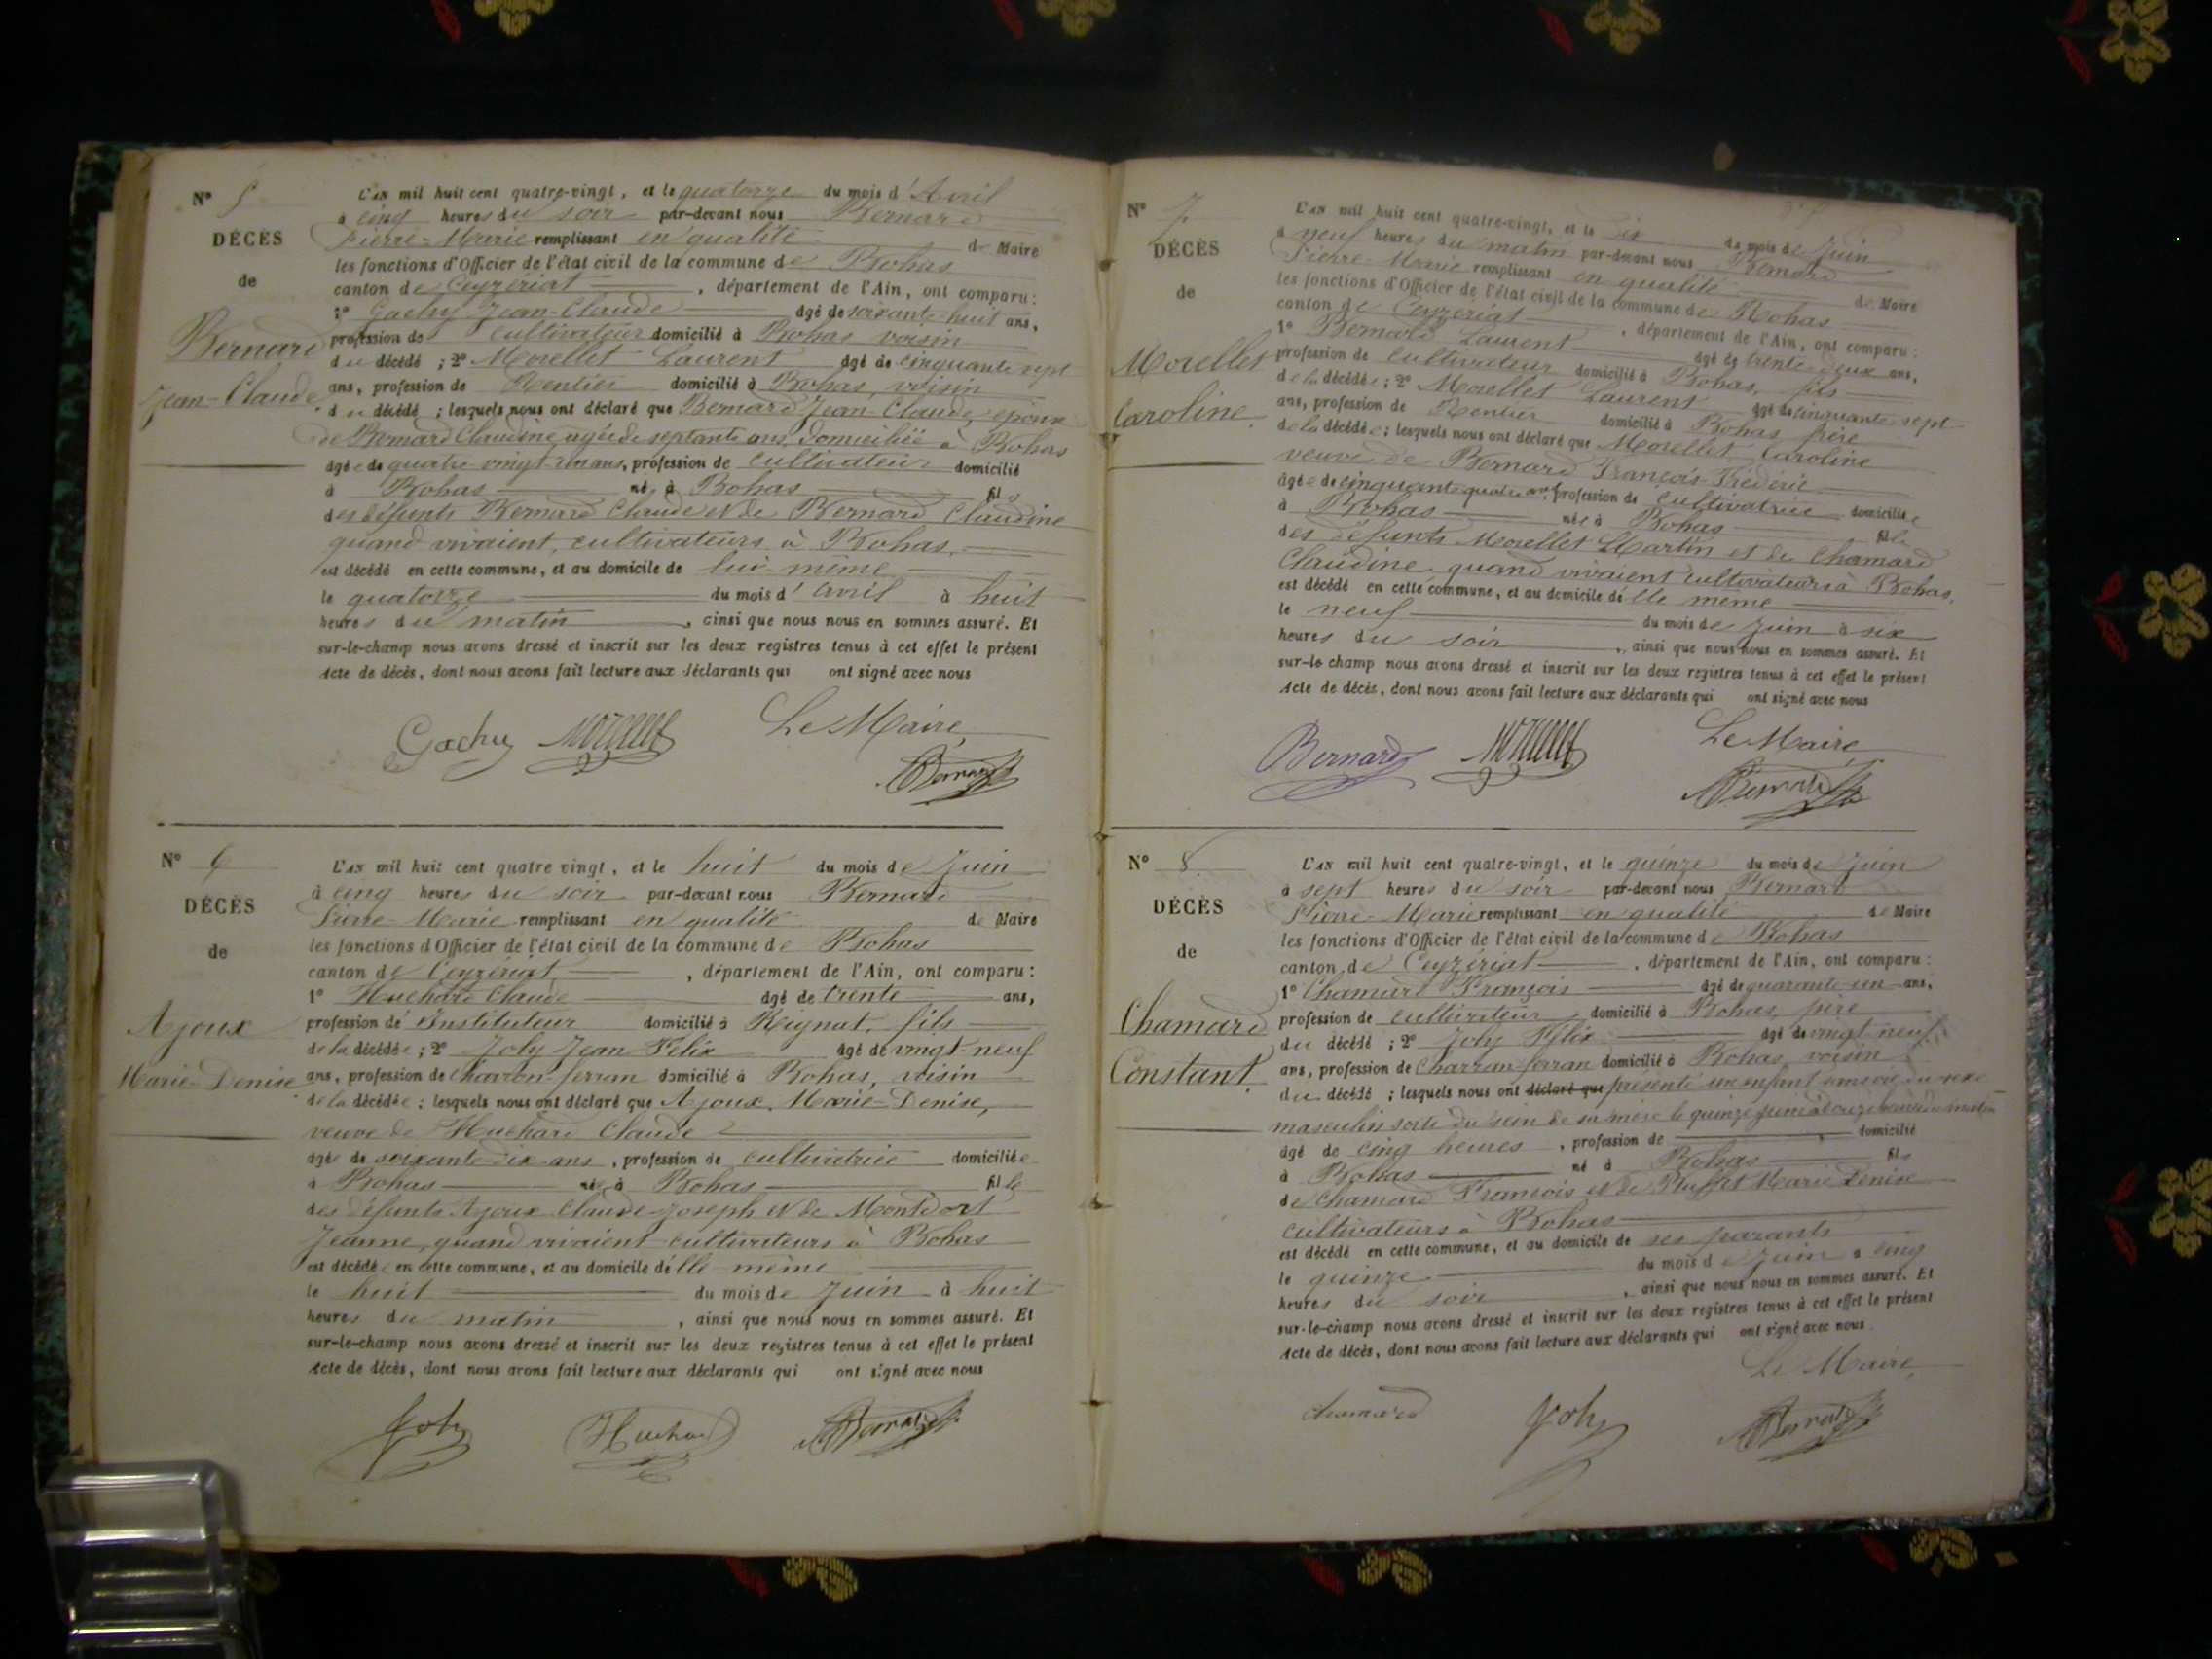 N° 5
DÉCÈS
de
Bernard
Jean-Claude
L'AN mil huit cent quatre-vingt, et le quatorze du mois d'Avril
à cinq heures du soir par-devant nous Bernard
Pierre-Marie remplissant en qualité de Maire
les fonctions d'Officier de l'état civil de la commune de Bohas
canton de Ceyzériat, département de l'Ain, ont comparu :
1° Gachy Jean-Claude âgé de soixante-huit ans,
profession de cultivateur domicilié à Bohas voisin
du décédé ; 2° Morellet Laurent âgé de cinquante sept
ans, profession de Rentier domicilié à Bohas, voisin
du décédé ; lesquels nous ont déclaré que Bernard Jean-Claude, époux
de Bernard Claudine, agée de septante ans, domiciliée à Bohas
âgé de quatre vingt ans, profession de cultivateur domicilié
à Bohas né à Bohas fils
des défunts Bernard Claude et de Bernard Claudine
quand vivaient, cultivateurs à Bohas,
est décédé en cette commune, et au domicile de lui-même
le quatorze du mois d'avril à huit
heures du matin, ainsi que nous nous en sommes assuré. Et
sur-le-champ nous avons dressé et inscrit sur les deux registres tenus à cet effet le présent
Acte de décès, dont nous avons fait lecture aux déclarants qui ont signé avec nous
Le Maire,
Gachy Morellet
Bernard
N° 6
DÉCÈS
de
Ajoux
Marie-Denise
L'AN mil huit cent quatre vingt, et le huit du mois de Juin
à cinq heures du soir par-devant nous Bernard
Pierre-Marie remplissant en qualité de Maire
les fonctions d'Officier de l'état civil de la commune de Bohas
canton de Ceyzériat, département de l'Ain, ont comparu :
1° Huchard Claude âgé de trente ans,
profession de Instituteur domicilié à Reignat, fils
de la décédée ; 2° Joly Jean Félix âgé de vingt-neuf
ans, profession de charron-ferran domicilié à Bohas, voisin
de la décédée ; lesquels nous ont déclaré que Ajoux, Marie-Denise,
veuve de Huchard Claude
âgée de soixante-dix-ans, profession de cultivatrice domiciliée
à Bohas née à Bohas fille
des défunts Ajoux Claude-Joseph et de Montdort
Jeanne, quand vivaient cultivateurs à Bohas
est décédée en cette commune, et au domicile de lle même
le huit du mois de Juin à huit
heures du matin, ainsi que nous nous en sommes assuré. Et
sur-le-champ nous avons dressé et inscrit sur les deux registres tenus à cet effet le présent
Acte de décès, dont nous avons fait lecture aux déclarants qui ont signé avec nous
Joly Huchard Bernard
N° 7
DÉCÈS
de
Morellet
Caroline.
L'AN mil huit cent quatre-vingt, et le dix du mois de Juin
à neuf heures du matin par-devant nous Bernard
Pierre-Marie remplissant en qualité de Maire
les fonctions d'Officier de l'état civil de la commune de Bohas
canton de Ceyzériat, département de l'Ain, ont comparu :
1° Bernard Laurent âgé de trente-deux ans,
profession de cultivateur domicilié à Bohas, fils
de la décédée ; 2° Morellet Laurent âgé de cinquante sept
ans, profession de Rentier domicilié à Bohas, frère
de la décédée ; lesquels nous ont déclaré que Morellet Caroline
veuve de Bernard François-Frédéric
âgée de cinquante quatre ans, profession de cultivatrice domiciliée
à Bohas née à Bohas fille
des défunts Morellet Martin et de Chamard
Claudine quand vivaient cultivateurs à Bohas,
est décédé en cette commune, et au domicile de lle même
le neuf du mois de Juin à six
heures du soir, ainsi que nous nous en sommes assuré. Et
sur-le champ nous avons dressé et inscrit sur les deux registres tenus à cet effet le présent
Acte de décès, dont nous avons fait lecture aux déclarants qui ont signé avec nous
Le Maire,
Bernard Morellet
Bernard
N° 8.
DÉCÈS
de
Chamard
Constant.
L'AN mil huit cent quatre-vingt, et le quinze du mois de Juin
à sept heures du soir par-devant nous Bernard
Pierre-Marie remplissant en qualité de Maire
les fonctions d'Officier de l'état civil de la commune de Bohas
canton de Ceyzériat, département de l'Ain, ont comparu :
1° Chamard François âgé de quarante-un ans,
profession de cultivateur domicilié à Bohas, père
du décédé ; 2° Joly Félix âgé de vingt neuf
ans, profession de Charran ferran domicilié à Bohas, voisin
du décédé ; lesquels nous ont déclaré que présenté un enfant sans vie du sexe
masculin sorti du sein de sa mère le quinze Juin à heures du matin
âgé de cinq heures, profession de domicilié
à Bohas né à Bohas fils
de Chamard François et de Marie Denise
cultivateurs à Bohas
est décédé en cette commune, et au domicile de ses parants
le quinze du mois de Juin à cinq
heures du soir, ainsi que nous nous en sommes assuré. Et
sur-le-champ nous avons dressé et inscrit sur les deux registres tenus à cet effet le présent
Acte de décès, dont nous avons fait lecture aux déclarants qui ont signé avec nous
Le Maire,
chamard Joly Bernard